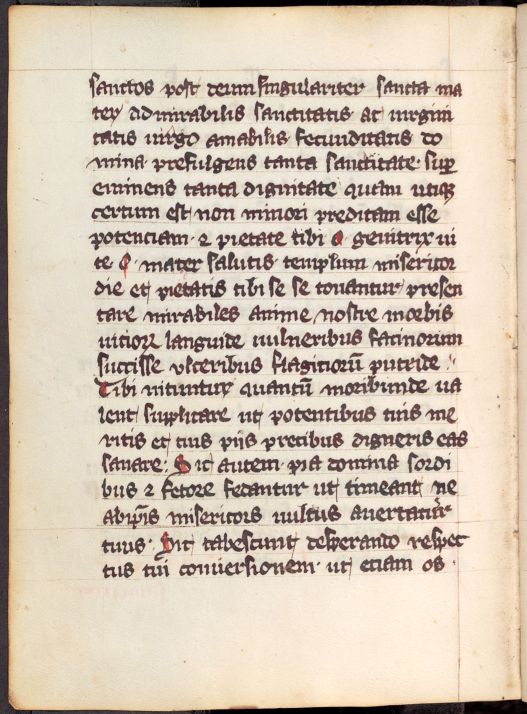 sanctos post deum singulariter sancta ma
ter admirabilis sanctitatis ac uirgini
tatis uirgo amabilis fecunditatis do
mina prefulgens tanta sanctitate sup
eminens tanta dignitate quam utiqꝫ
certum est non minori preditam esse
potenciam ⁊ pietate tibi o genitrix ui
te o mater salutis templum misericor
die et pietatis tibi se se conantur presen
tare mirabiles anime nostre morbis
uitioꝝ languide uulneribus facinorum
succisse ulceribus flagitiorū putride
Tibi nituntur quantū moribunde ua
lent supplicare ut potentibus tuis me
ritis et tuis piis precibus digneris eas
sanare. Sic autem pia domina sordi
bus ⁊ fetore fedantur ut timeant ne
ab ip̄is misericors uultus auertatur
tuus. Sic tabescunt desperando respec
tus tui conuersionem ut eciam os